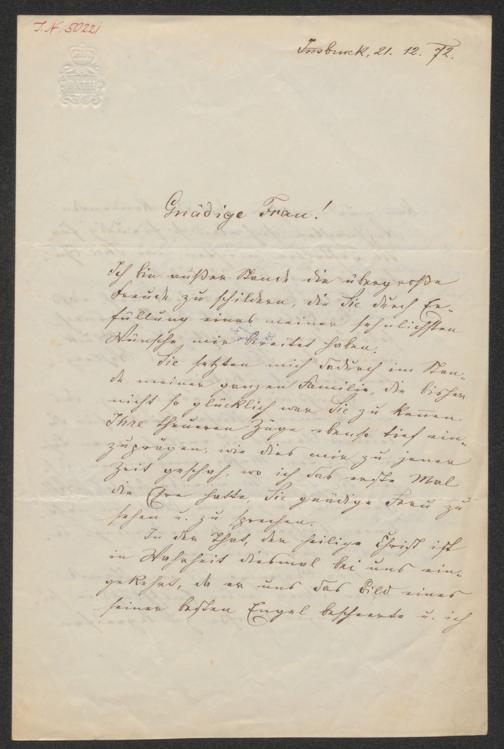 I. N. 50221
Innsbruck, 21. 12. 72.
Gnädige Frau!
Ich bin außer Stande die übergroße
Freude zu schildern, die Sie durch Er-
füllung eines meiner sehnlichsten
Wünsche, mir bereitet haben.
Sie setzten mich dadurch im Stan-
de meiner ganzen Familie, die bisher
nicht so glücklich war Sie zu kennen
Ihre theueren Züge ebenso tief ein-
zuprägen, wie dies mir zu jener
Zeit geschah, wo ich das erste Mal
die Ehre hatte, Sie gnädige Frau zu
sehen u. zu sprechen.
In der That, der heilige Christ ist
in Wahrheit diesmal bei uns ein-
gekehrt, da er uns das Bild eines
seiner besten Engel bescheerte u. ich